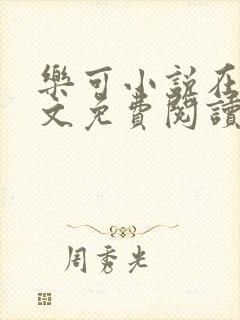 樂可小說在
文免費閱讀
周秀光